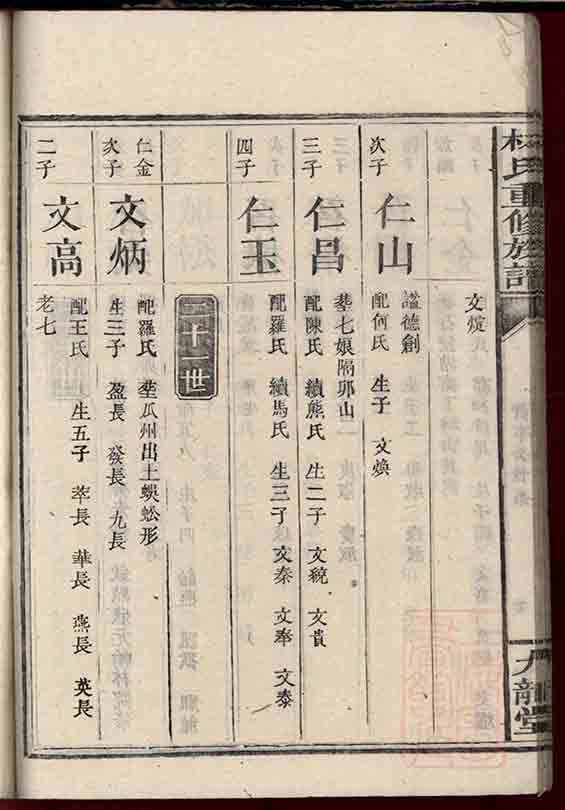 林氏重修族譜
九龍堂
文煌
次子
仁山
諡德創
配何氏 生子 文煥
三子
仁昌
塟七娘隔卯山
配陳氏 續熊氏 生二子 文統 文貴
四子
仁玉
配羅氏 續馬氏 生三子 文秦 文奉 文泰
二十一世
仁金
次子
文炳
配羅氏 塟瓜州出土蜈蚣形
生三子 盈長 發長 九長
二子
文高
配王氏 生五子 萃長 華長 燕長 英長
老七